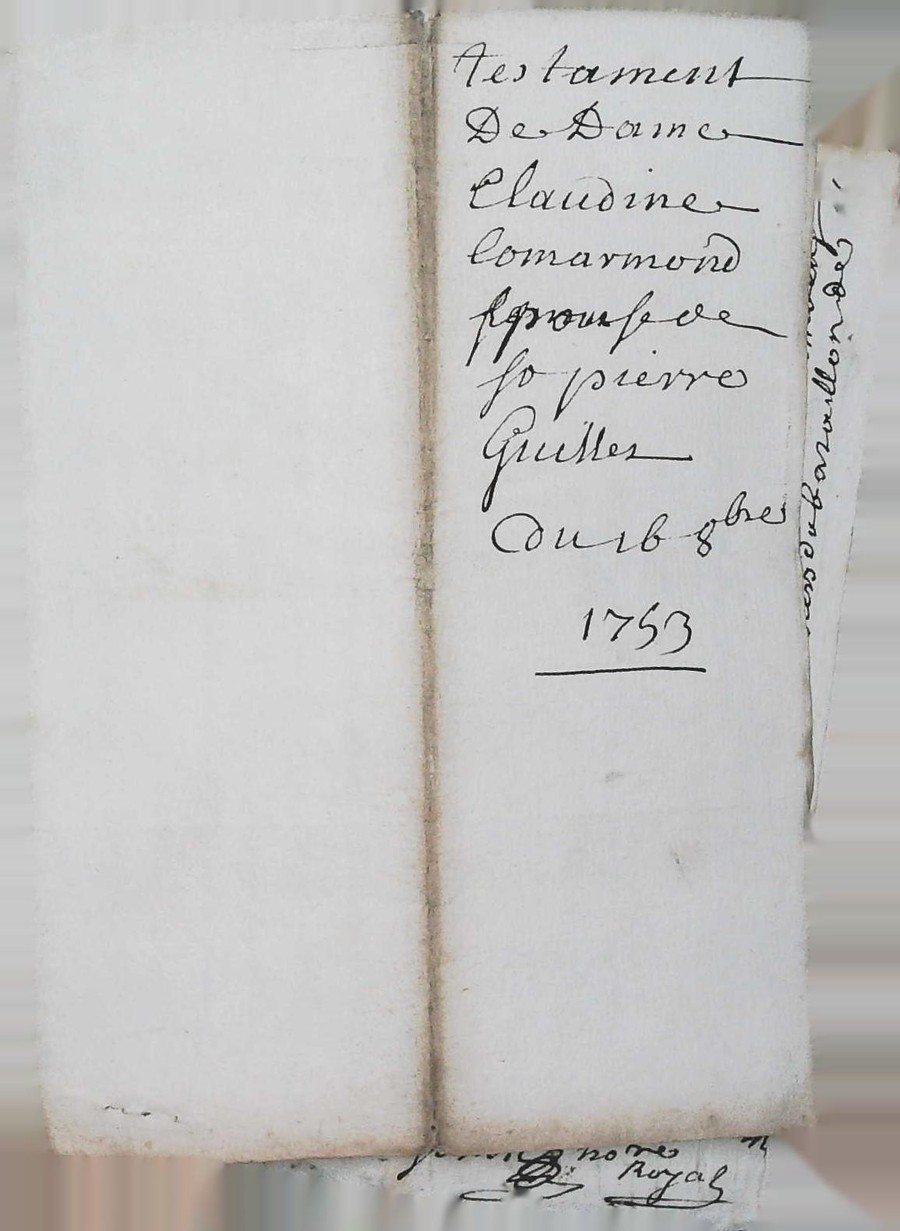 testament
De Dame
Claudine
Comarmond
Epouse de
sr pierre
Guilles
du 16 8bre
1753
nore
Royal